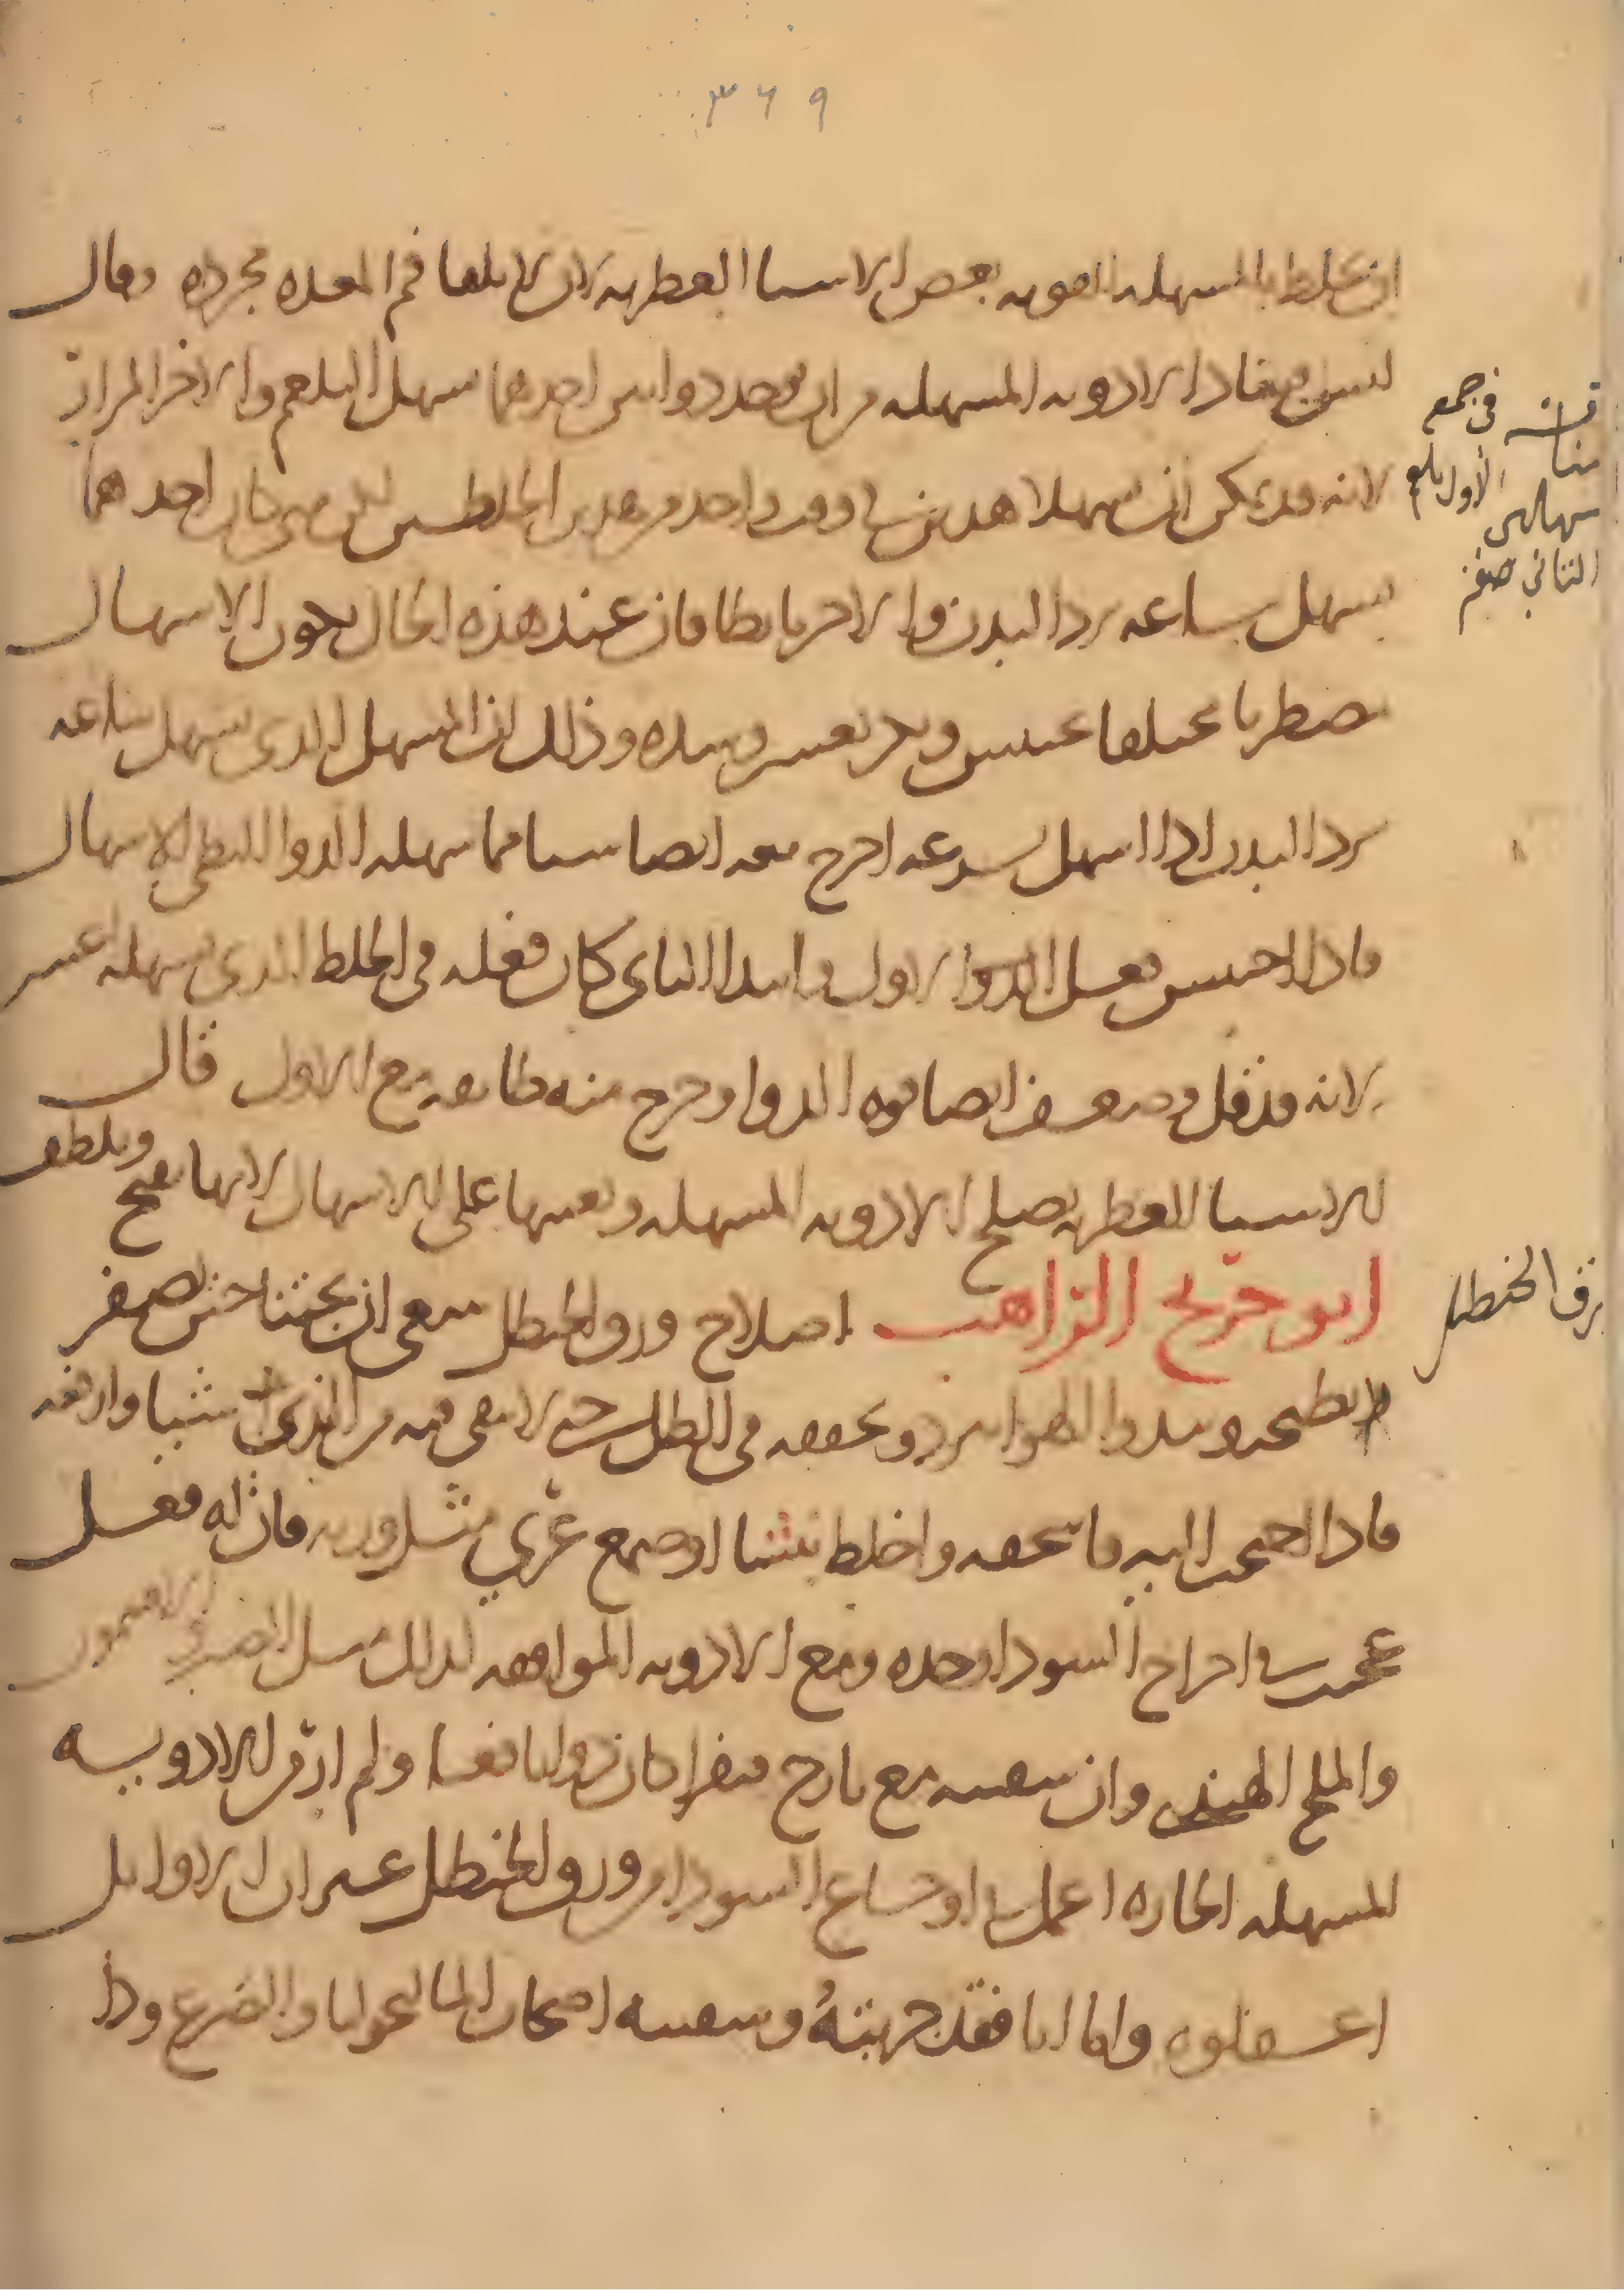 ٣٦٩
ان يخلط بالمسهله القويه بعض الاشيا العطريه لان لا يلقا فم المعده مجرده وقال
ليس فساد الادويه المسهله من ان يوجد دوايين احدهما يسهل البلغم والاخر المرار
لانه قد يمكن ان يسهلا هذين في وقت واحد من هذين الخلطين لكن متى كان احدهما
يسهل ساعه يرد البدن والاخر بابطا فان عند هذه الحال يكون الاسهال
مضطربا مختلفا وذلك ان المسهل الذي يسهل ساعه
يرد البدن اذا اسهل بسرعه اخرج معه ايضا شيا مما يسهله الدوا البطي الاسهال
فاذا احتبس فعل الدوا الاول وابتدا الثاني كان فعله في الخلط الذي يسهله اعسر
لانه قد قل وضعف ايضا قوه الدوا وخرج منه طايفه مع الاول قال
الاشيا العطريه تصلح الادويه المسهله وتعينها على الاسهال لانها تفتح وتلطف
ابو جريج الراهب اصلاح ورق الحنظل ينبغي ان يجتنا حين يصفر
بطيخه ويبدوا الهوا يبرد ويجففه في الظل حتى لا يبقى فيه من الندى شيا وارفعه
فاذا احتجت اليه فاسحقه واخلط بنشا او صمغ عربي مثل وزنه فان له فعل
عجيب في اخراج السودا وحده ومع الادويه الموافقه لذلك مثل الصبر والافتيمون
والملح الهندي وان سقيته مع يارج فيقرا كان دوا نافعا ولم ار من الادويه
المسهله الحاره اعمل في اوجاع السودا من ورق الحنظل غير ان الاوايل
اغفلوه واما انا فقد جربته وسقيته اصحاب المالنخوليا والصرع ودا
في جمع
الاول بلغم
الثاني صفر
ورق الحنظل